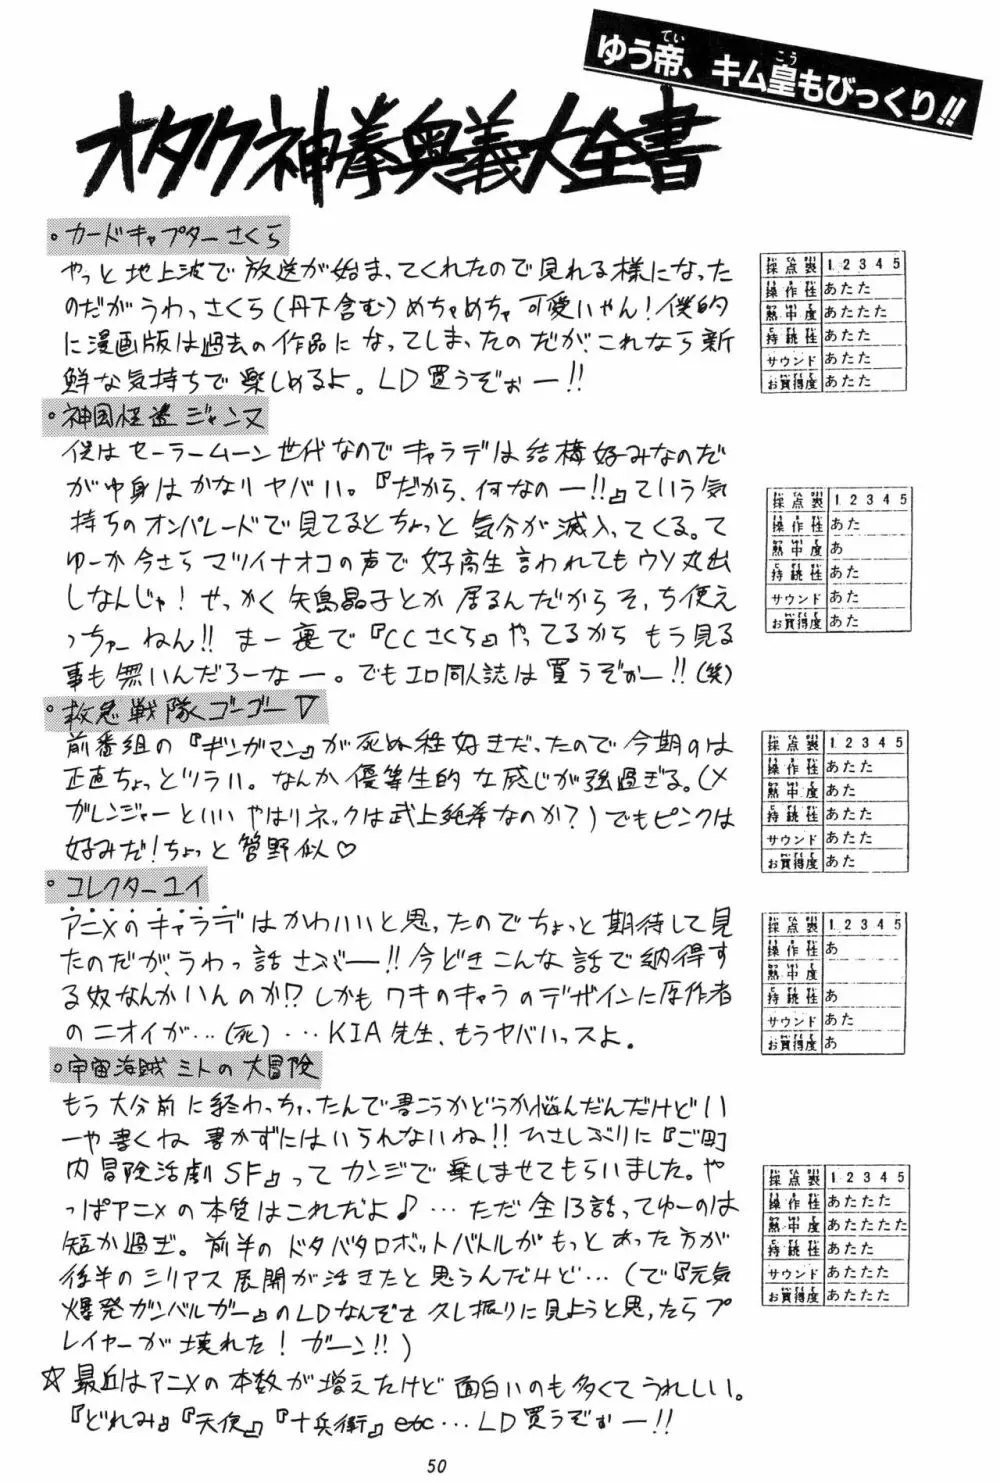 ゆう帝、キム皇もびっくり!!
オタク神拳奥義大全書
。カードキャプターさくら
やっと地上波で放送が始まってくれたので見れる様になった
のだがうわっさくら(丹下含む)めちゃめちゃ可愛いやん!僕的
に漫画版は過去の作品になってしまったのだが、これなら新
鮮な気持ちで楽しめるよ。LD買うぞぉー!!
採点表 1 2 3 4 5
操作性 あたた
熱中度 あたたた
持続性 あたた
サウンド あたた
お買得度 あたた
。神国怪盗ジャンヌ
僕はセーラームーン世代なのでキャラデは結構好みなのだ
が中身はかなりヤバい。『だから、何なのー!!』ていう気
持ちのオンパレードで見てるとちょっと気分が滅入ってくる。て
ゆーか今さらマツイナオコの声で女子高生言われてもウソ丸出
しなんじゃ!せっかく矢島晶子とか居るんだからそっち使え
っちゃーねん!!まー裏で『CCさくら』やってるからもう見る
事も無いんだろーなー。でもエロ同人誌は買うぞぉー!!(笑)
採点表 1 2 3 4 5
操作性 あた
熱中度 あ
持続性 あた
サウンド あた
お買得度 あた
。救急戦隊ゴーゴーV
前番組の『ギンガマン』が死ぬ程好きだったので今期のは
正直ちょっとツラい。なんか優等生的な感じが強過ぎる。(メ
ガレンジャーといいやはりネックは武上純希なのか?)でもピンクは
好みだ!ちょっと菅野似♡
採点表 1 2 3 4 5
操作性 あたた
熱中度 あた
持続性 あたた
サウンド あたた
お買得度 あた
。コレクターユイ
アニメのキャラデはかわいいと思ったのでちょっと期待して見
たのだが、うわっ話さぶー!!今どきこんな話で納得す
る奴なんかいんのか!?しかもワキのキャラのデザインに原作者
のニオイが…(死)…KIA先生、もうヤバいっスよ。
採点表 1 2 3 4 5
操作性 あ
熱中度
持続性 あ
サウンド あた
お買得度 あ
。宇宙海賊ミトの大冒険
もう大分前に終わっちゃったんで書こうかどうか悩んだんだけどい
ーや書くね書かずにはいられないね!!ひさしぶりに『ご町
内冒険活劇SF』ってカンジで楽しませてもらいました。や
っぱアニメの本質はこれだよ♪…ただ全13話ってゆーのは
短か過ぎ。前半のドタバタロボットバトルがもっとあった方が
後半のシリアス展開が活きたと思うんだけど…(で『元気
爆発ガンバルガー』のLDなんぞを久し振りに見ようと思ったらプ
レイヤーが壊れた!ガーン!!)
採点表 1 2 3 4 5
操作性 あたたた
熱中度 あたたたた
持続性 あたた
サウンド あたたた
お買得度 あたたた
☆最近はアニメの本数が増えたけど面白いのも多くてうれしい。
『どれみ』『天使』『十兵衛』etc…LD買うぞぉー!!
50